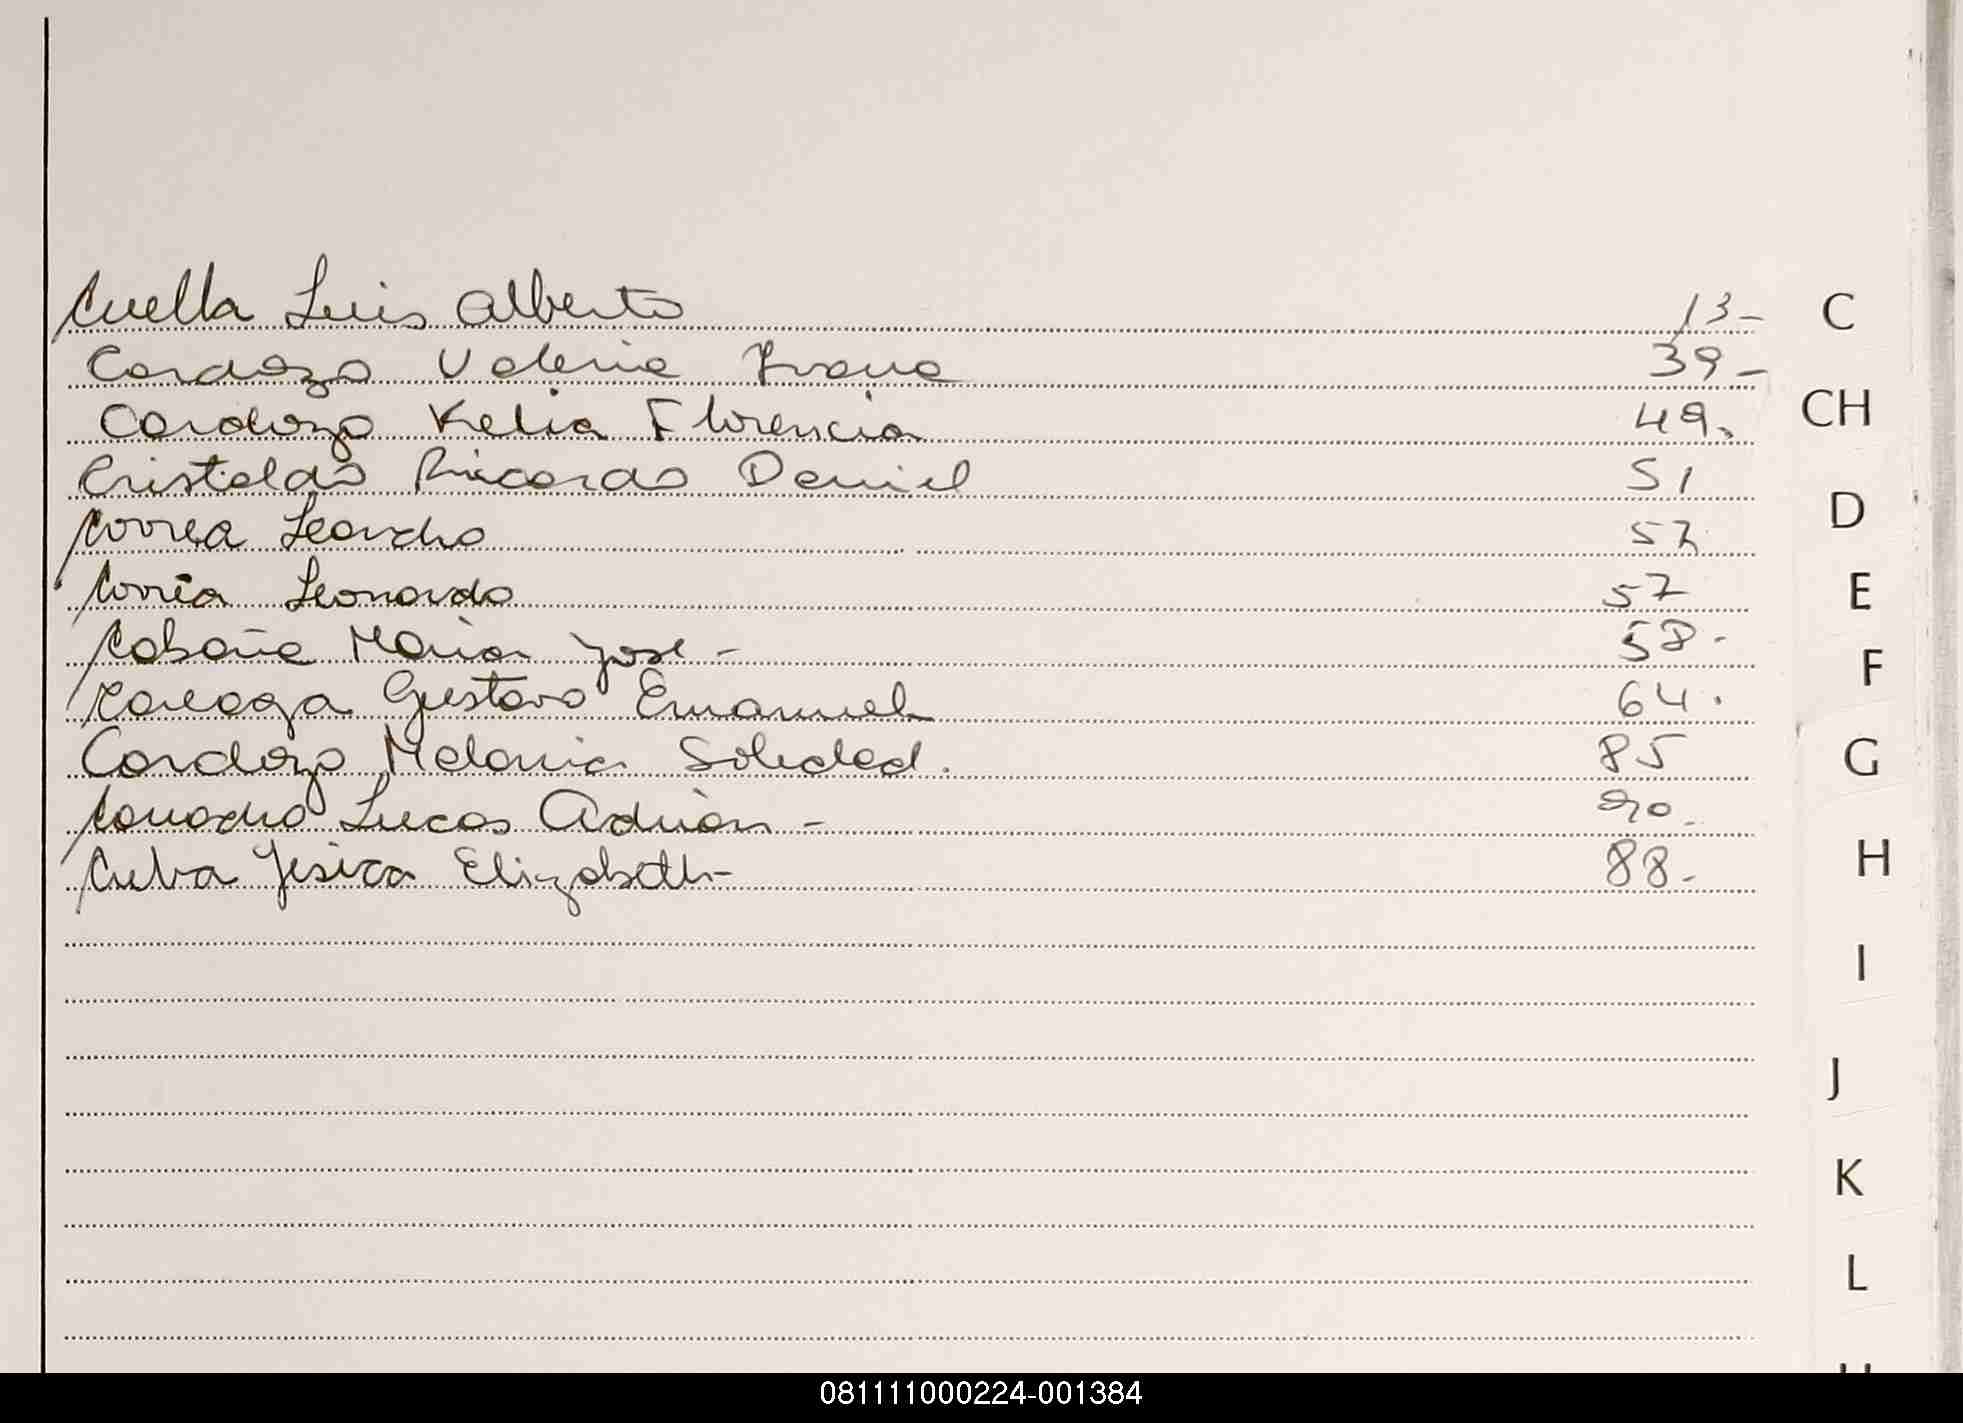 Cuella Luis Alberto 13-
Cardozo Valeria Ivana 39-
Cardozo Kelia Florencia 49.
Cristaldo Ricardo Daniel 51
Correa Leandro 57
Correa Leonardo 57
Cabaña Maria Jose - 58.
Gustavo Emanuel 64.
Cardozo Melania Soledad. 85
Lucas Adrian - 90.
Cuba Jesica Elizabeth- 88-
C
CH
D
E
F
G
H
I
J
K
L
081111000224-001384